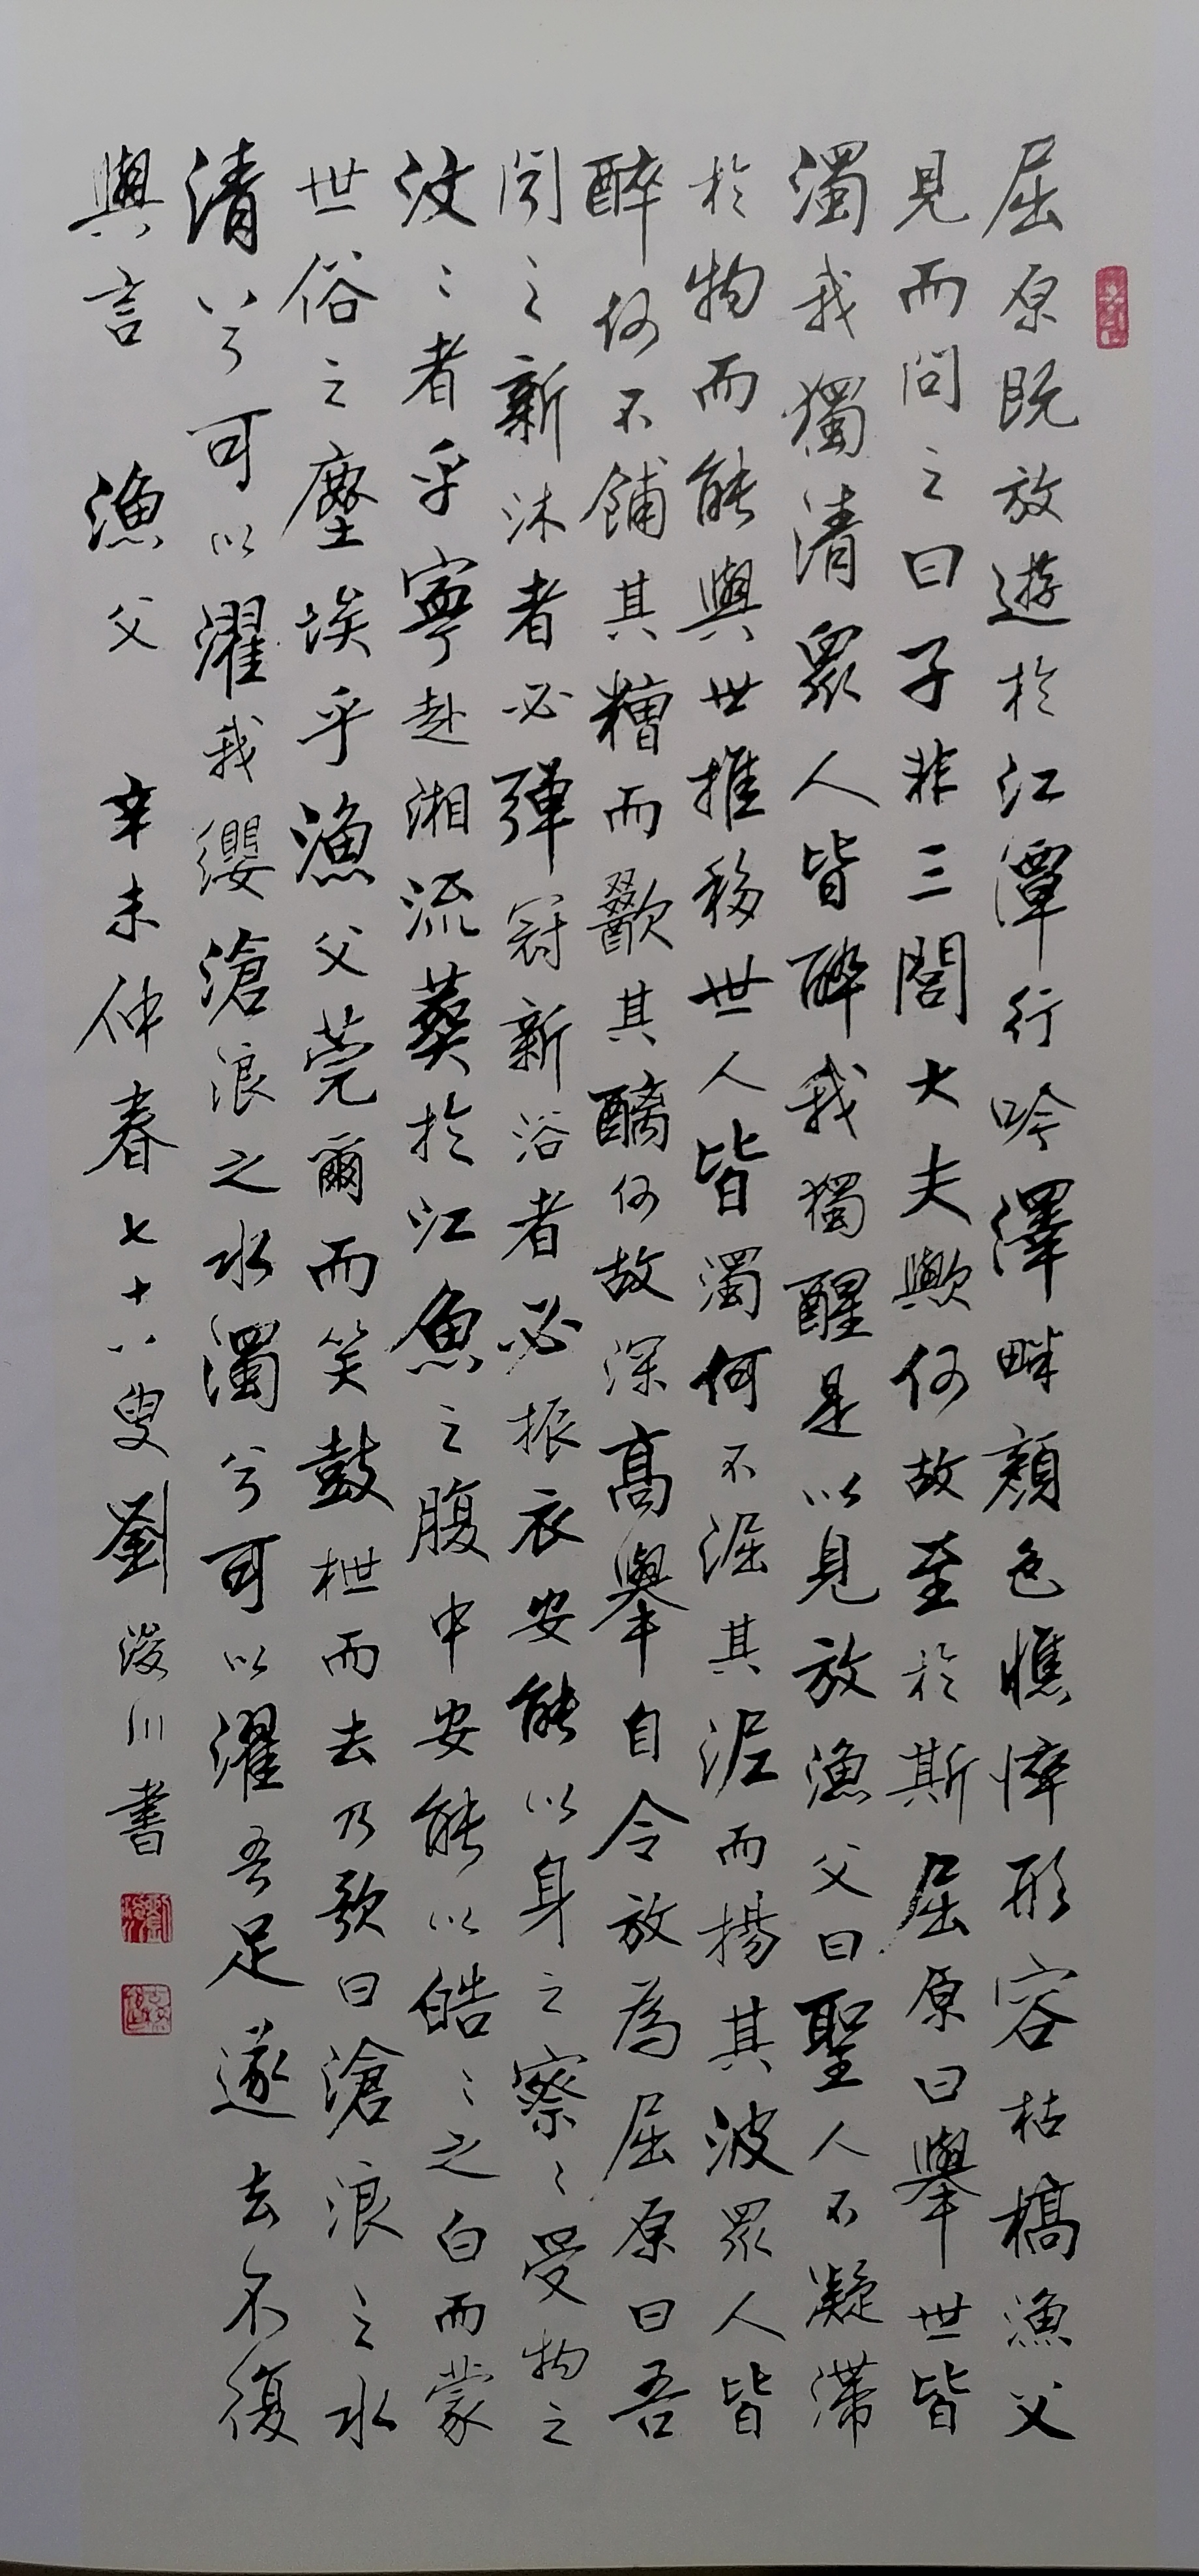 屈原既放遊於江潭行吟澤畔顏色憔悴形容枯槁漁父
見而問之曰子非三閭大夫歟何故至於斯屈原曰舉世皆
濁我獨清眾人皆醉我獨醒是以見放漁父曰聖人不凝滯
於物而能與世推移世人皆濁何不淈其泥而揚其波眾人皆
醉何不餔其糟而歠其醨何故深高舉自令放為屈原曰吾
聞之新沐者必彈冠新浴者必振衣安能以身之察〻受物之
汶〻者乎寧赴湘流葬於江魚之腹中安能以皓〻之白而蒙
世俗之塵埃乎漁父莞爾而笑鼓枻而去乃歌曰滄浪之水
清兮可以濯我纓滄浪之水濁兮可以濯吾足遂去不復
與言 漁父 辛未仲春七十八叟劉浚川書